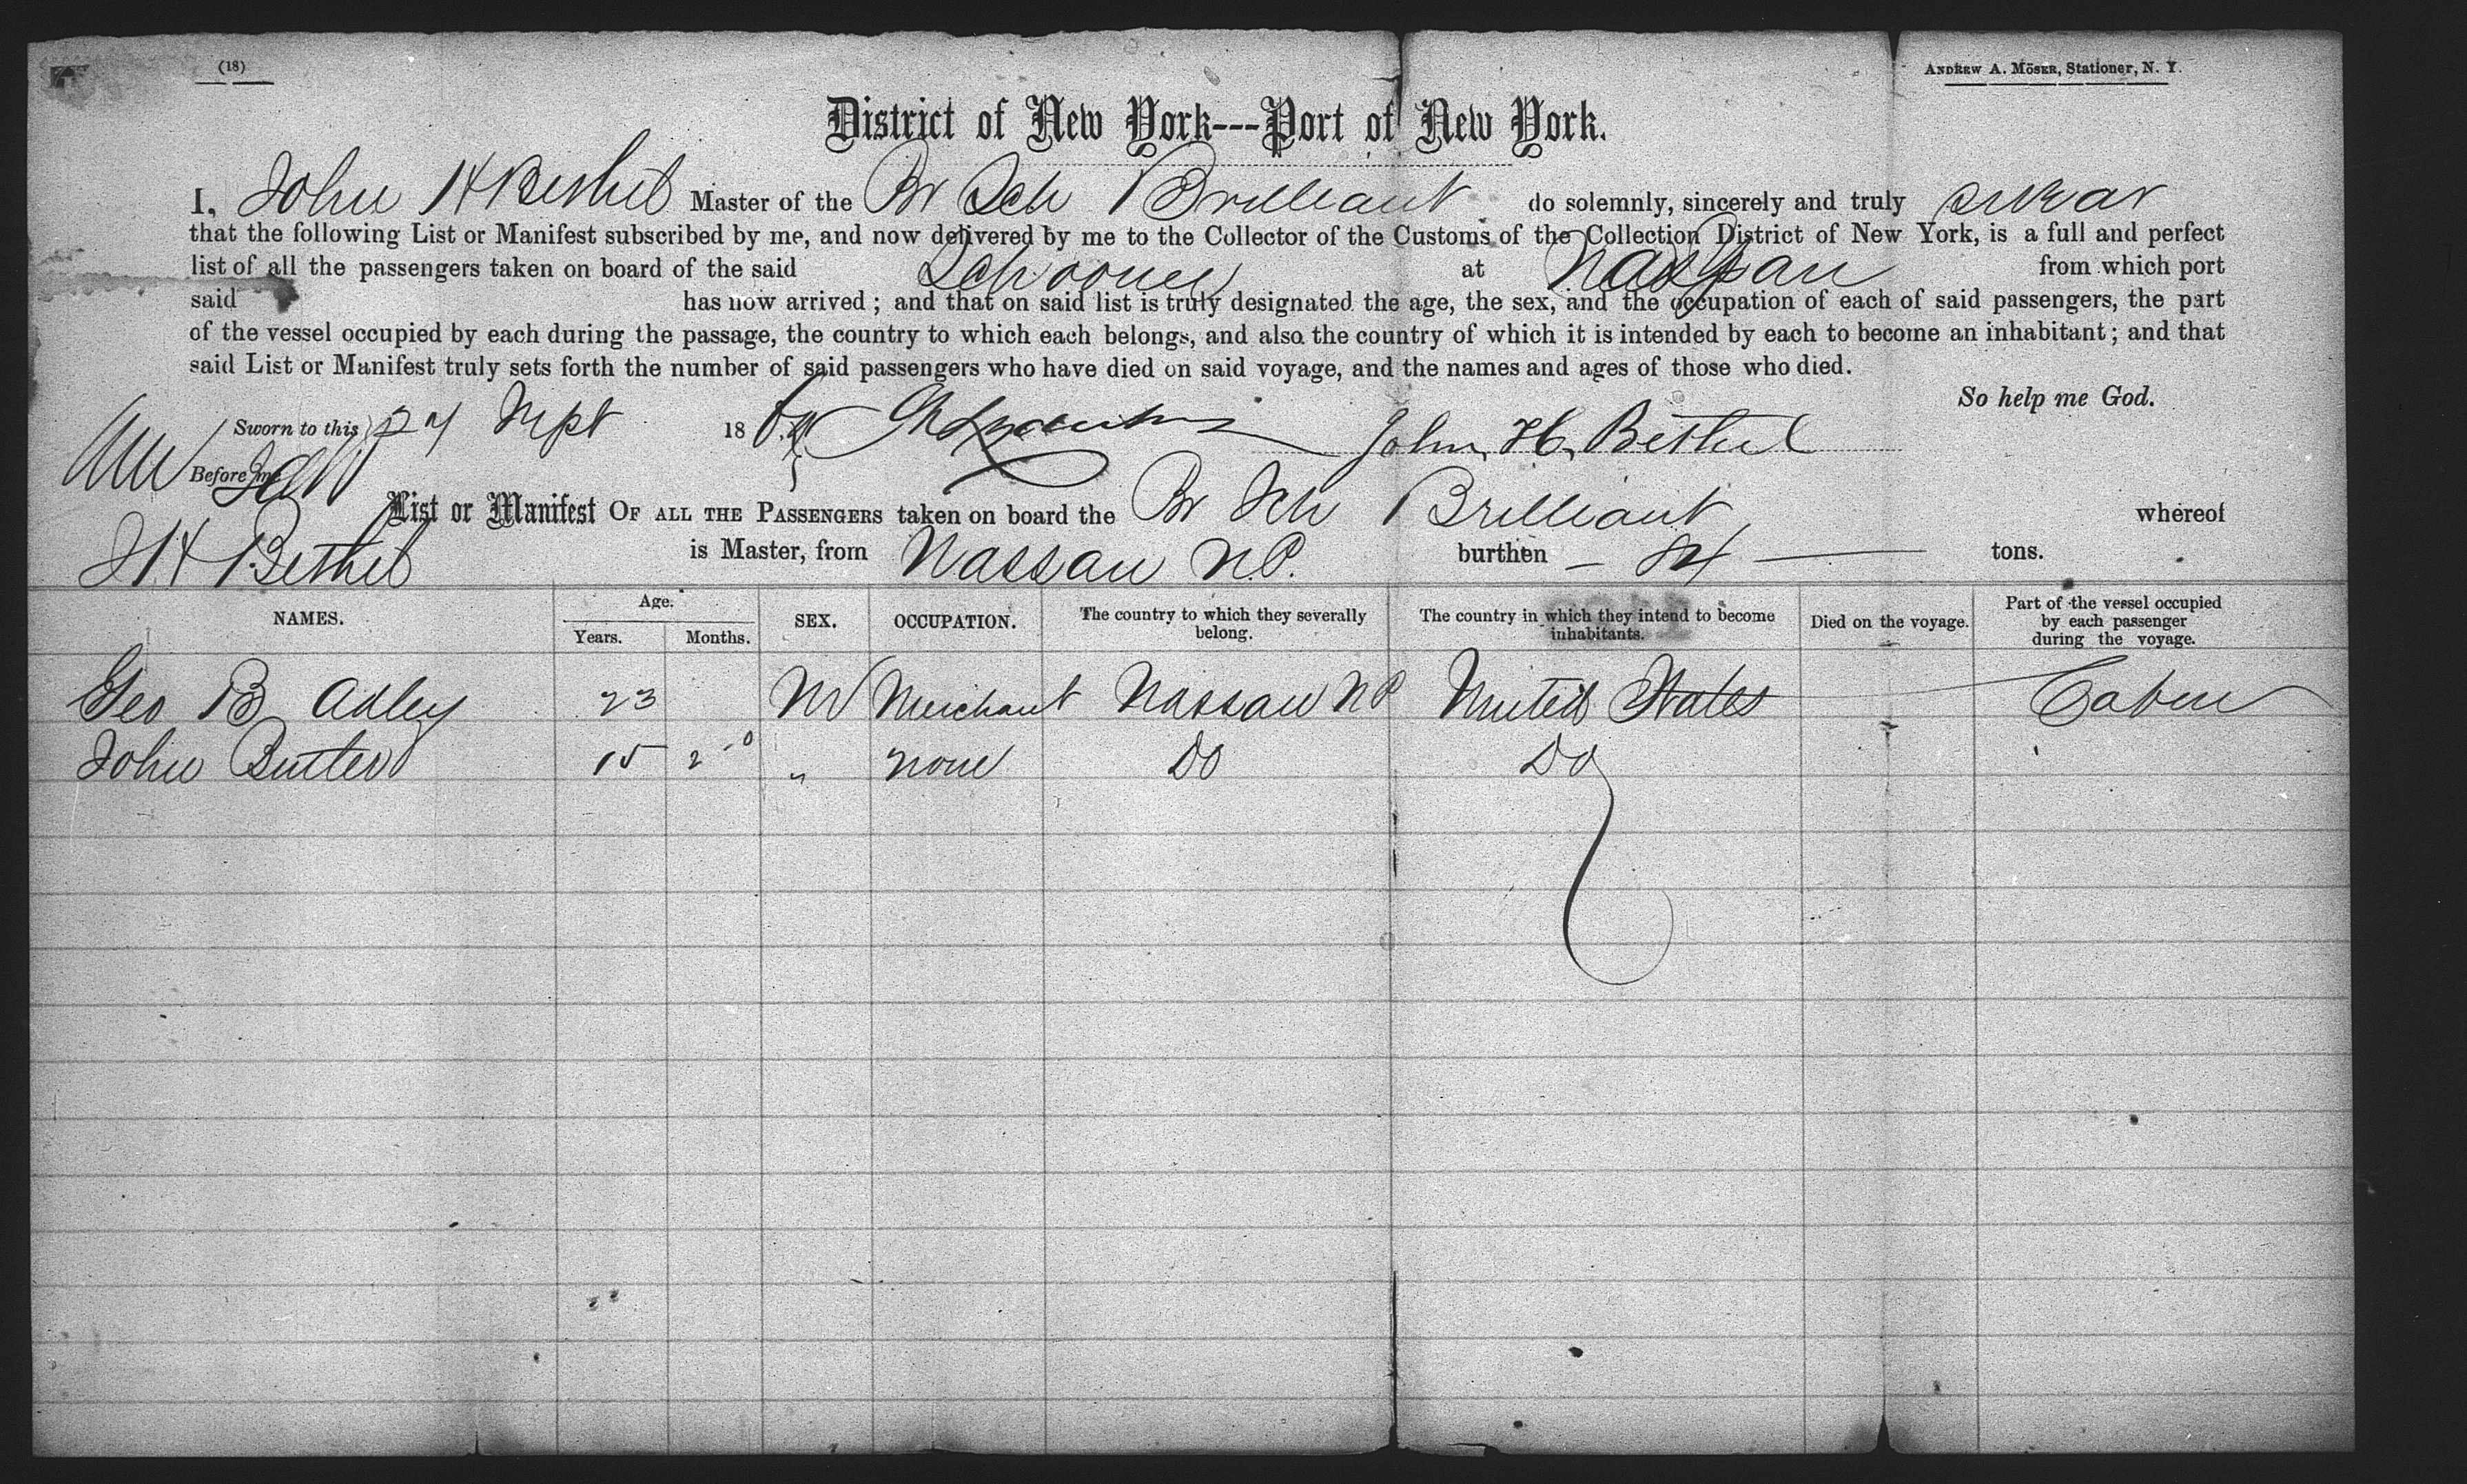 (18)
ANDREW A. MÖSER, Stationer, N. Y.
District of New York---Port of New York.
I, John H Bethel Master of the Br Sch Brilliant do solemnly, sincerely and truly swear
that the following List or Manifest subscribed by me, and now delivered by me to the Collector of the Customs of the Collection District of New York, is a full and perfect
list of all the passengers taken on board of the said Schooner at Nassau from which port
said has now arrived; and that on said list is truly designated the age, the sex, and the occupation of each of said passengers, the part
of the vessel occupied by each during the passage, the country to which each belongs, and also the country of which it is intended by each to become an inhabitant; and that
said List or Manifest truly sets forth the number of said passengers who have died on said voyage, and the names and ages of those who died.
So help me God.
Sworn to this 27 Sept 186 John H. Bethel
Before me
List or Manifest OF ALL THE PASSENGERS taken on board the Br Sch Brilliant whereof
J H Bethel is Master, from Nassau N.P. burthen — 84 — tons.
NAMES. Age. Years. Months. SEX. OCCUPATION. The country to which they severally belong. The country in which they intend to become inhabitants. Died on the voyage. Part of the vessel occupied by each passenger during the voyage.
Geo B Adley 23 M Merchant Nassau NP United States Cabin
John Butler 15 2 " none Do Do